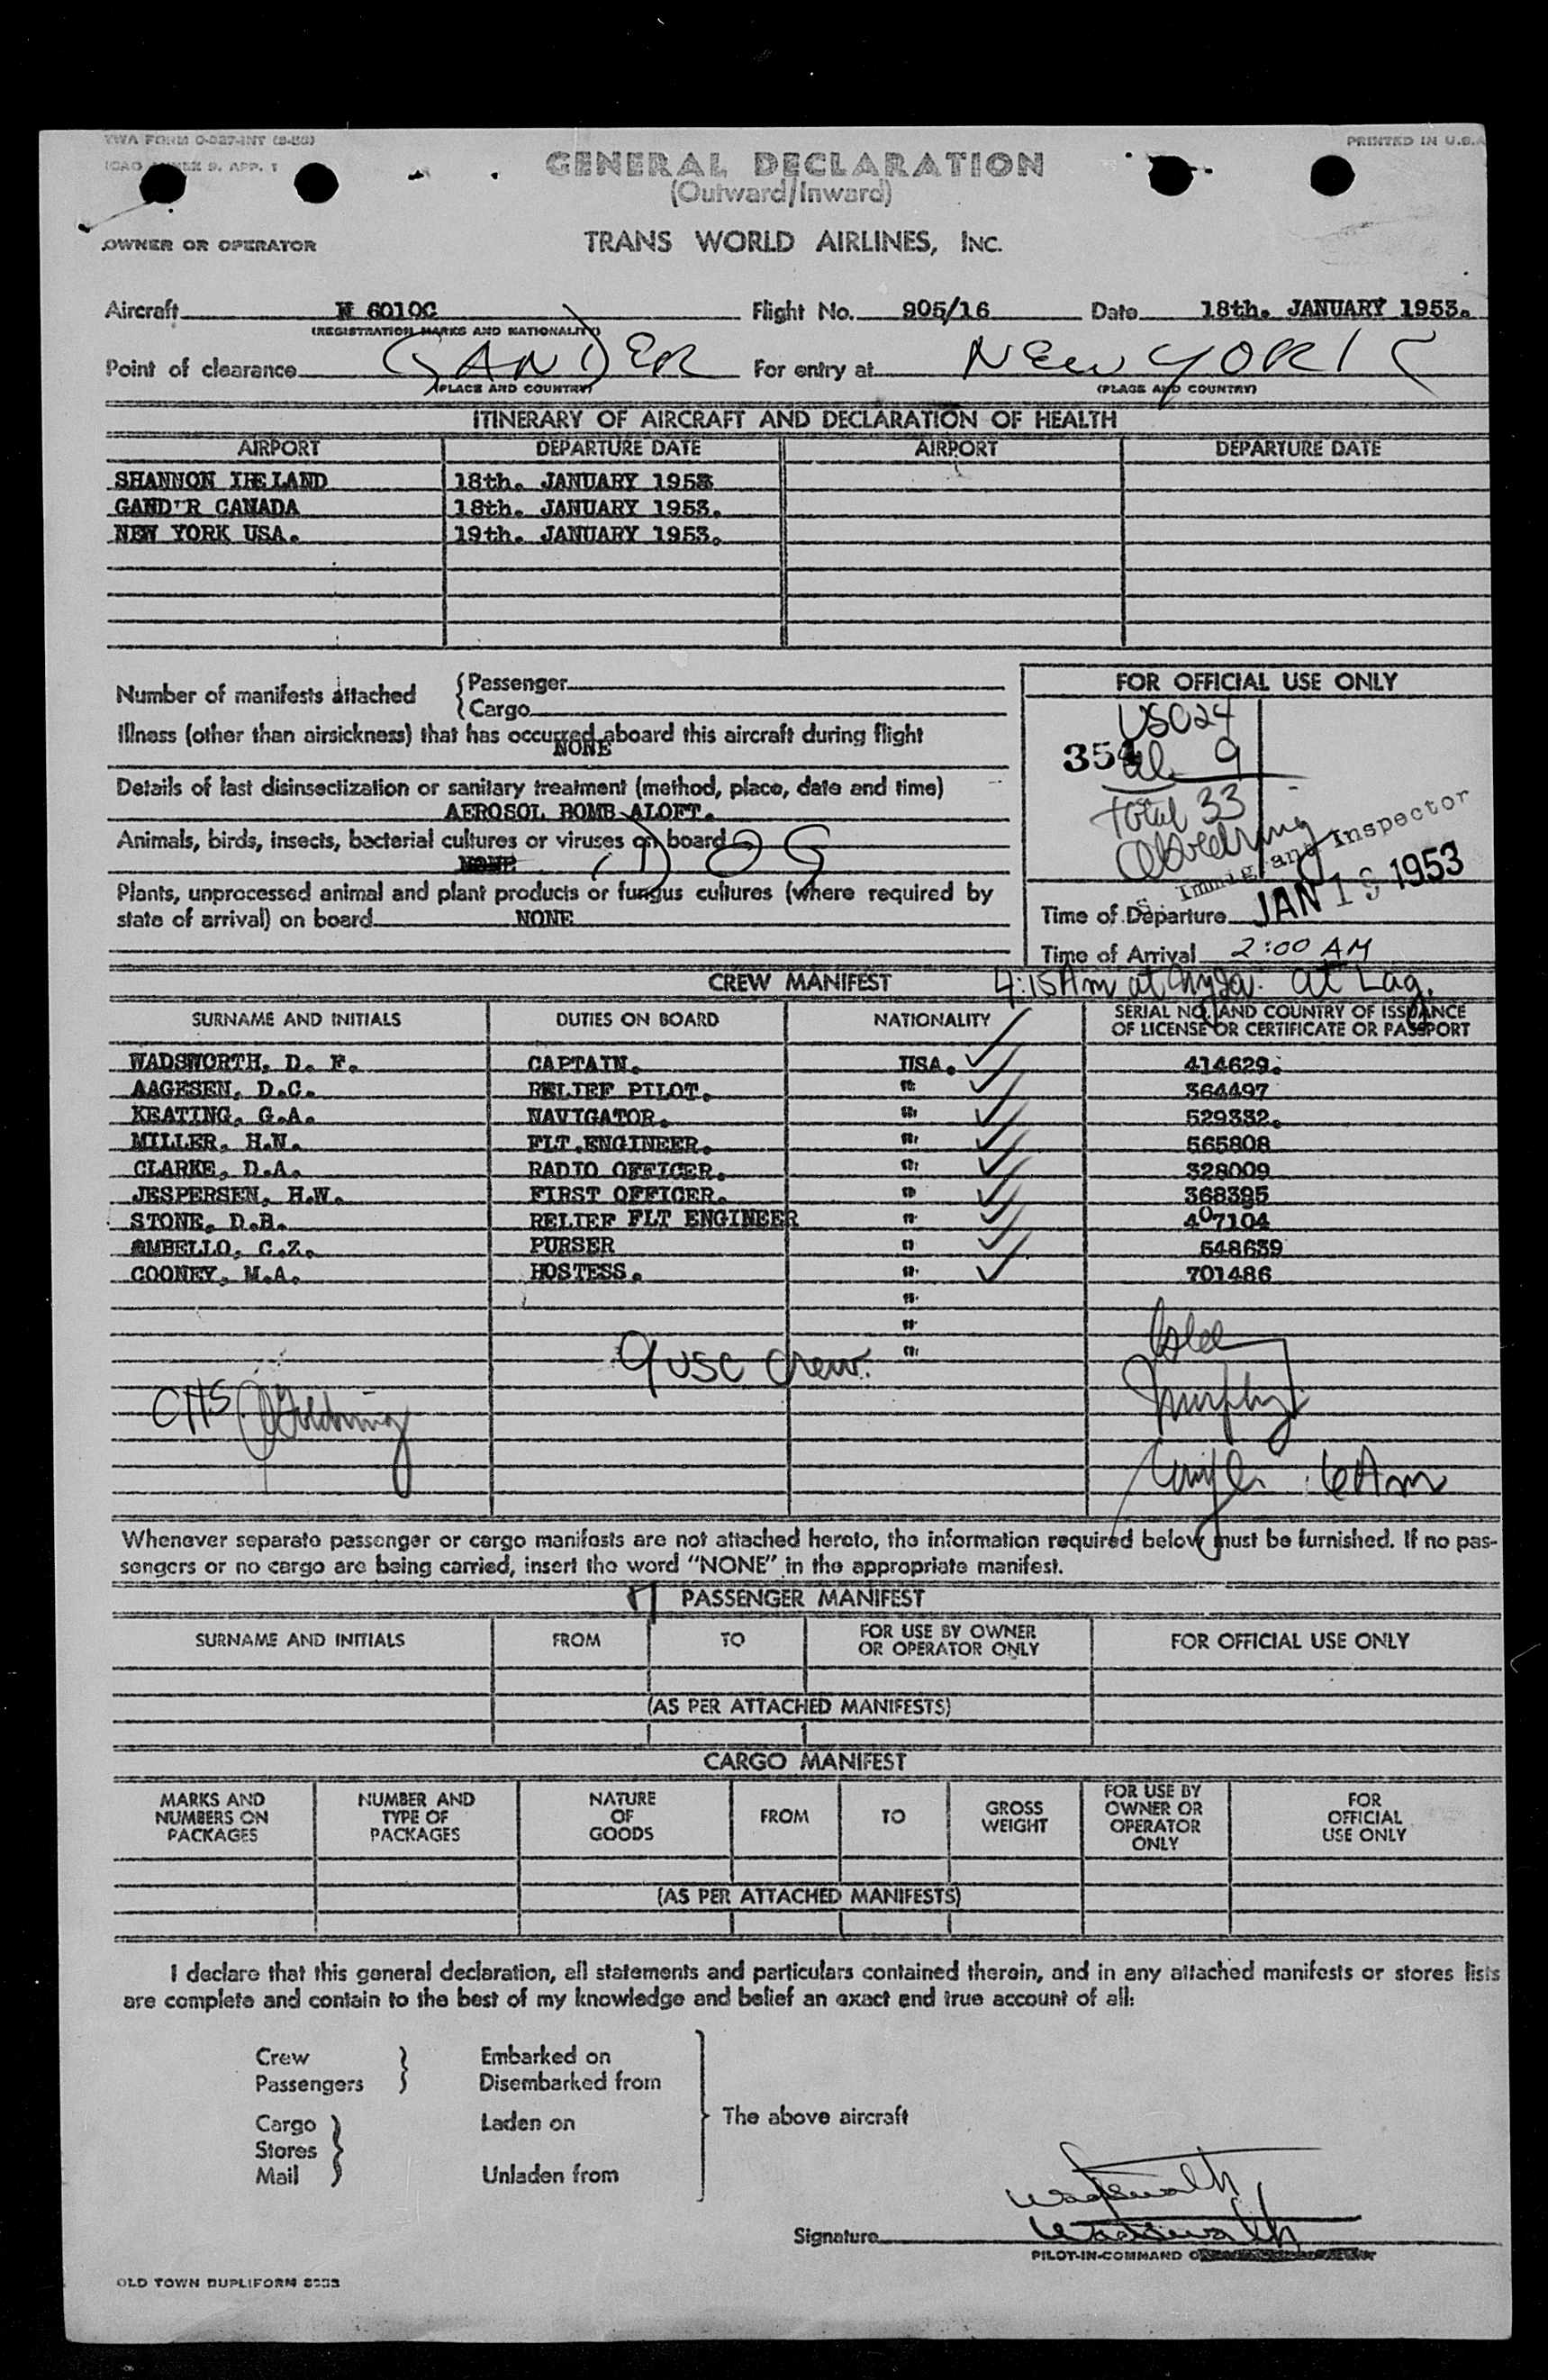 TWA FORM O-027-INT
PRINTED IN U.S.A
ICAO ANNEX 9, APP. 1
GENERAL DECLARATION
(Outward/Inward)
OWNER OR OPERATOR TRANS WORLD AIRLINES, INC.
Aircraft N 6010C Flight No. 905/16 Date 18th. JANUARY 1953.
(REGISTRATION MARKS AND NATIONALITY)
Point of clearance GANDER For entry at NEW YORK
(PLACE AND COUNTRY) (PLACE AND COUNTRY)
ITINERARY OF AIRCRAFT AND DECLARATION OF HEALTH
AIRPORT DEPARTURE DATE AIRPORT DEPARTURE DATE
SHANNON IRELAND 18th. JANUARY 1953
GAND'R CANADA 18th. JANUARY 1953.
NEW YORK USA. 19th. JANUARY 1953.
Number of manifests attached { Passenger
{ Cargo
Illness (other than airsickness) that has occurred aboard this aircraft during flight
NONE
Details of last disinsectization or sanitary treatment (method, place, date and time)
AEROSOL BOMB ALOFT.
Animals, birds, insects, bacterial cultures or viruses on board
NONE DOG
Plants, unprocessed animal and plant products or fungus cultures (where required by
state of arrival) on board NONE
FOR OFFICIAL USE ONLY
USC 24
354 al 9
total 33
Immigrant Inspector
Time of Departure JAN 19 1953
Time of Arrival 2:00 AM
CREW MANIFEST 4:15 Am at at Lag.
SURNAME AND INITIALS DUTIES ON BOARD NATIONALITY SERIAL NO. AND COUNTRY OF ISSUANCE
OF LICENSE OR CERTIFICATE OR PASSPORT
WADSWORTH, D. F. CAPTAIN. USA. 414629.
AAGESEN, D.C. RELIEF PILOT. " 364497
KEATING, G.A. NAVIGATOR. " 529332.
MILLER, H.N. FLT.ENGINEER. " 565808
CLARKE, D.A. RADIO OFFICER. " 328009
JESPERSEN, H.W. FIRST OFFICER. " 368395
STONE, D.B. RELIEF FLT ENGINEER " 407104
AMBELLO, C.Z. PURSER " 548639
COONEY, M.A. HOSTESS. " 701486
"
"
"
9 USC Crew.
CHS Goldring
Murphy
6 Am
Whenever separate passenger or cargo manifests are not attached hereto, the information required below must be furnished. If no pas-
sengers or no cargo are being carried, insert the word "NONE" in the appropriate manifest.
PASSENGER MANIFEST
SURNAME AND INITIALS FROM TO FOR USE BY OWNER
OR OPERATOR ONLY FOR OFFICIAL USE ONLY
(AS PER ATTACHED MANIFESTS)
CARGO MANIFEST
MARKS AND
NUMBERS ON
PACKAGES
NUMBER AND
TYPE OF
PACKAGES
NATURE
OF
GOODS
FROM
TO
GROSS
WEIGHT
FOR USE BY
OWNER OR
OPERATOR
ONLY
FOR
OFFICIAL
USE ONLY
(AS PER ATTACHED MANIFESTS)
I declare that this general declaration, all statements and particulars contained therein, and in any attached manifests or stores lists
are complete and contain to the best of my knowledge and belief an exact and true account of all:
Crew } Embarked on
Passengers } Disembarked from
Cargo } Laden on
Stores }
Mail } Unladen from
The above aircraft
Wadsworth
Signature Wadsworth
PILOT-IN-COMMAND
OLD TOWN DUPLIFORM